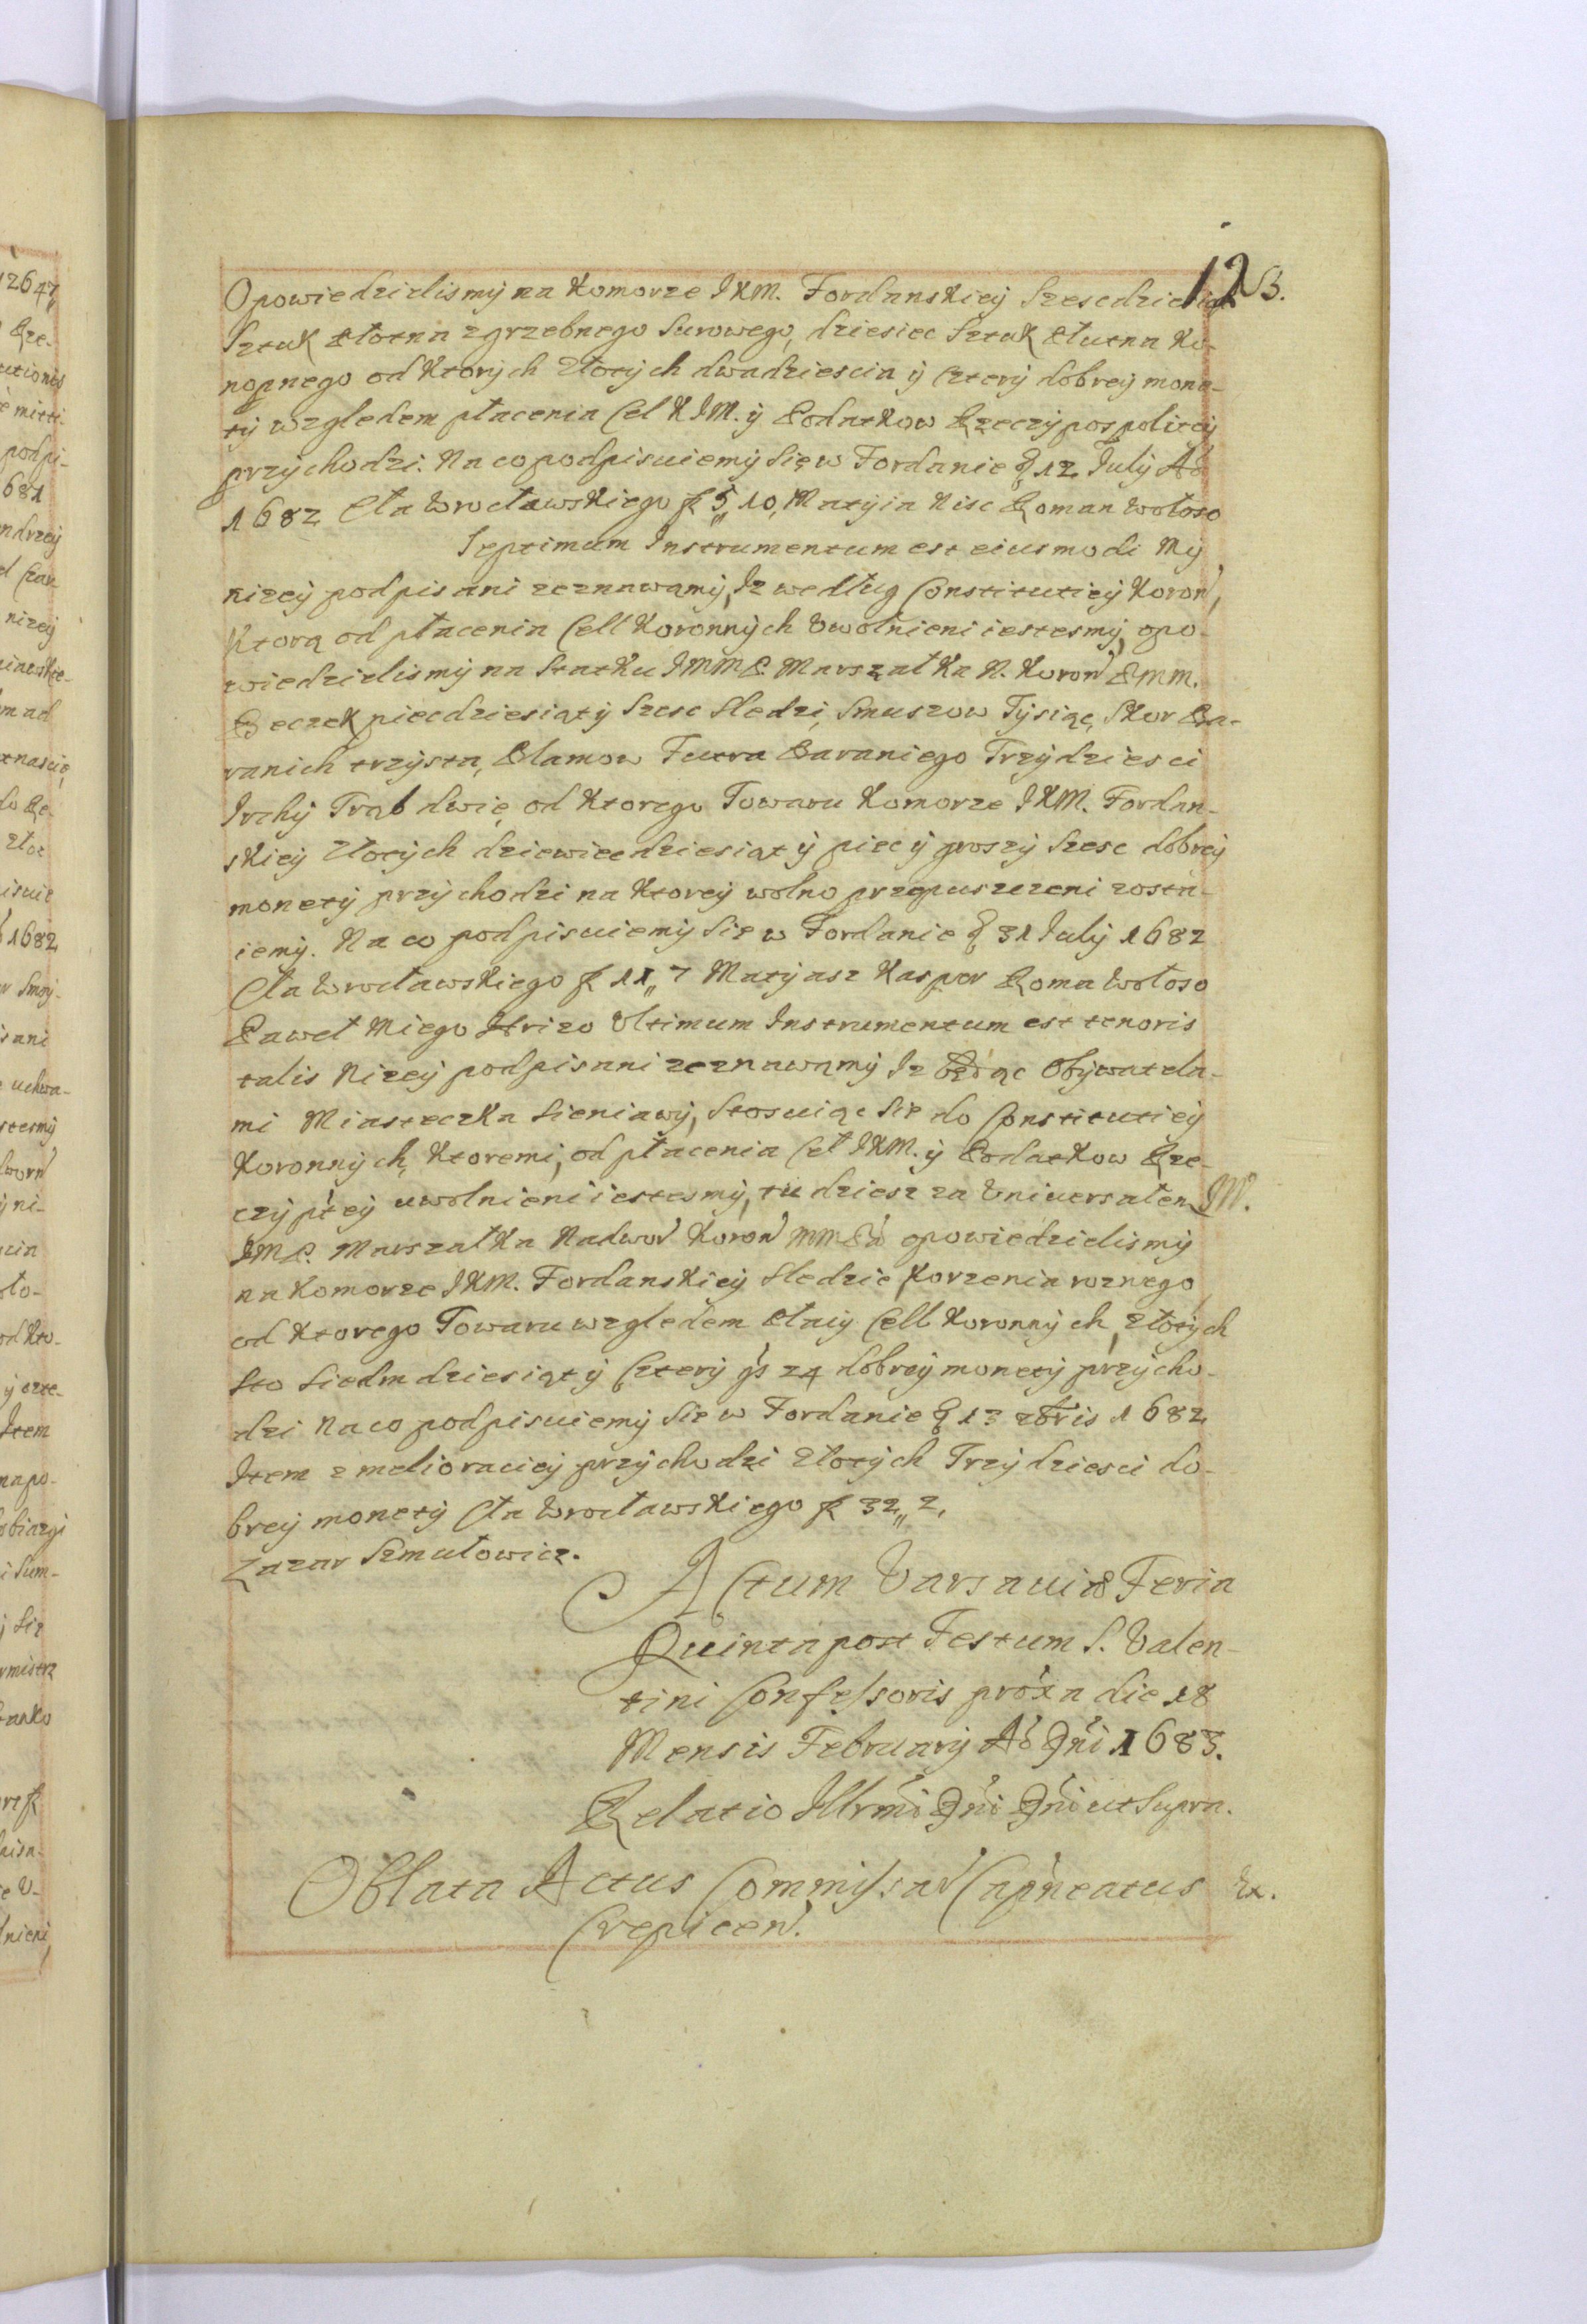 12 B.
Opowiedzielismy na Komorze JKM. Fordanskiey Szescdziesiąt
Sztuk Płotna zgrzebnego Surowego, dziesiec Sztuk Płutna Ko-
nopnego od Ktorych złotych dwadziescia ÿ Cztery dobreÿ mone-
tÿ względem płacenia Cel KJM. ÿ Podatkow Rzeczÿpospolitej
przÿchodzi. Na co podpisuiemÿ Się w Fordanie D 12 July Ao
1682 Cła Wrocławskiego f 5,, 10, Matÿia Nisc Roman Wołoso
Septimum Instrumentum est eiusmodi My
nizeÿ podpisani zeznawamÿ, Iz według Constitutieÿ Koron,
Ktorą od płacenia Cell Koronnÿch Uwolnieni iestesmÿ, opo-
wiedzielismÿ na Statku JMMP. Marszałka N. Koron PMM.
Beczek piecdziesiąt ÿ Szesc Sledzi, Smuszow Tÿsiąc, Skor Ba-
ranich trzÿsta, Blamow Futra Baraniego Trzÿdziesci
Irchÿ Trąb dwię od Ktorego Towaru Komorze JKM. Fordan-
skieÿ złotÿch dziewiecdziesiąt ÿ piec ÿ groszÿ Szesc dobreÿ
monetÿ przÿchodzi na Ktoreÿ wolno przepuszczeni zosta-
iemÿ. Na co podpisuiemÿ Sie w Fordanie D 31 Julÿ 1682
Cła Wrocławskiego f 11,, 7 Matÿasz Kasper Roma Wołoso
Paweł Miego Hrizo Ultimum Instrumentum est tenoris
talis Nizeÿ podpisani zeznawamÿ Iz Będąc Obÿwatela-
mi Miasteczka Sieniawÿ, Stosuiąc Sie do Constitutieÿ
Koronnÿch, Ktoremi, od płacenia Ceł JKM. ÿ Podatkow Rze-
czÿ pteÿ uwolnieni iestesmÿ, tudziesz za Uniwersałem JW.
JMP. Marszałka Nadwor Koron MMPa opowiedzielismÿ
na Komorze JKM. Fordanskieÿ Sledzie, Korzenia roznego
od Ktorego Towaru względem Płacÿ Cell Koronnÿch, złotÿch
Sto Siedmdziesiąt ÿ Czterÿ gs 24 dobreÿ monetÿ przÿcho-
dzi Na co podpisuiemÿ Sie w Fordanie D 13 zbris 1682
Item z melioracieÿ przÿchodzi złotÿch Trzÿdziesci do-
breÿ monetÿ Cła Wrocławskiego f 32,, 2,
Lazar Szmułowicz.
Actum Varsaviæ Feria
Quinta post Festum S. Valen-
tini Confessoris proxa die 18
Mensis Februarÿ Ao Dni 1683.
Relatio Illrmi Dni Dni ut Supra.
Oblata Actus Commissar Capneatus Rx.
Crepicen.